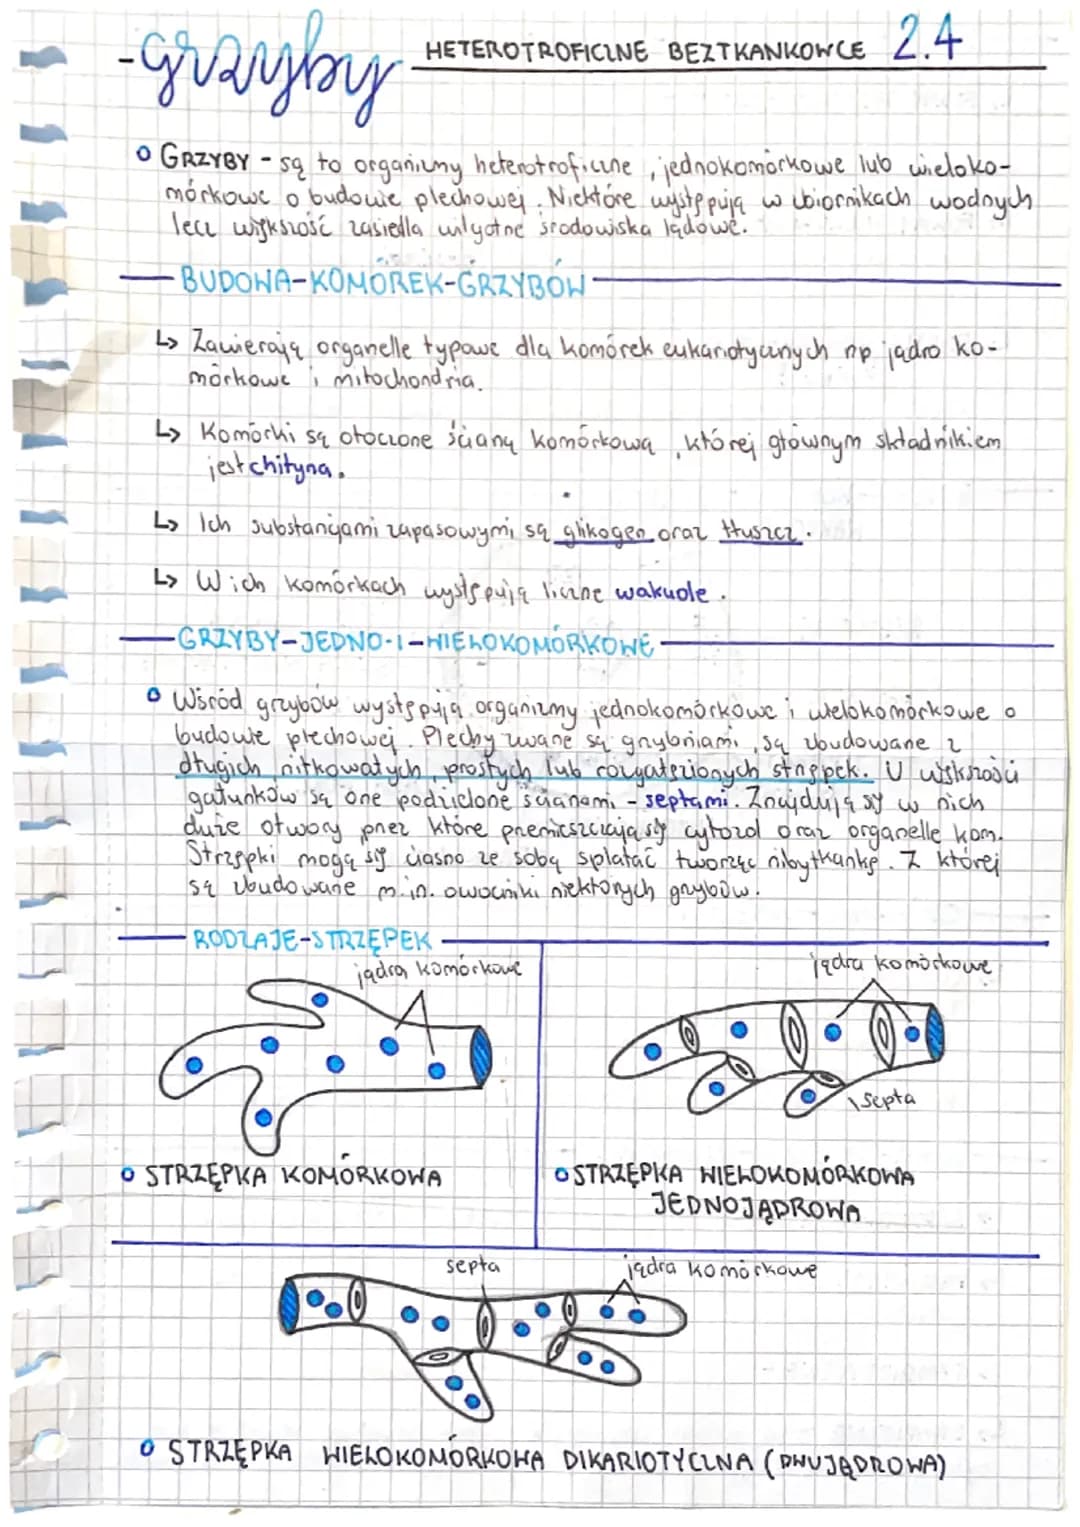 -grzyby HETEROTROFICZNE BEZTKANKOWCE 2.4
GRZYBY - są to organizmy heterotroficzne, jednokomórkowe lub wieloko-
mórkowe o budowie plechowej. Niektóre występują w zbiornikach wodnych
lecz większość zasiedla wilgotne środowiska lądowe.
BUDOWA-KOMÓREK-GRZYBÓW
↳ Zawierają organelle typowe dla komórek eukariotycznych np jądro ko-
mórkowe i mitochondria.
↳ Komórki są otoczone ścianą komórkową, której głównym składnikiem
jest chityna.
↳ Ich substancjami zapasowymi są glikogen oraz tłuszcz.
↳ W ich komórkach występują liczne wakuole.
GRZYBY-JEDNO-I-WIELOKOMÓRKOWE
Wśród grzybów występują organizmy jednokomórkowe i wielokomórkowe o
budowie plechowej. Plechy zwane są grzybniami, są zbudowane z
długich, nitkowatych, prostych lub rozgałęzionych strzępek. U większości
gatunków są one podzielone ścianami - septami. Znajdują się w nich
duże otwory przez które przemieszczają się cytozol oraz organelle kom.
Strzępki mogą się ciasno ze sobą splatać tworząc nibytkankę. Z której
są zbudowane m.in. owocniki niektórych grzybów.
RODZAJE-STRZĘPEK
jądra komórkowe
jądra komórkowe
septa
STRZĘPKA KOMÓRKOWA
STRZĘPKA WIELOKOMÓRKOWA
JEDNOJĄDROWA
septa
jądra komórkowe
STRZĘPKA WIELOKOMÓRKOWA DIKARIOTYCZNA (DWUJĄDROWA)